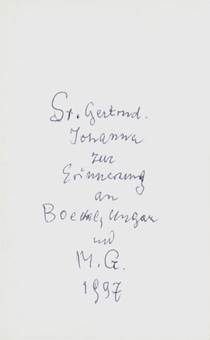 Sr. Gertrud.
Johanna
zur
Erinnerung
an
Boeckl, Ungar
und
M. G.
1997